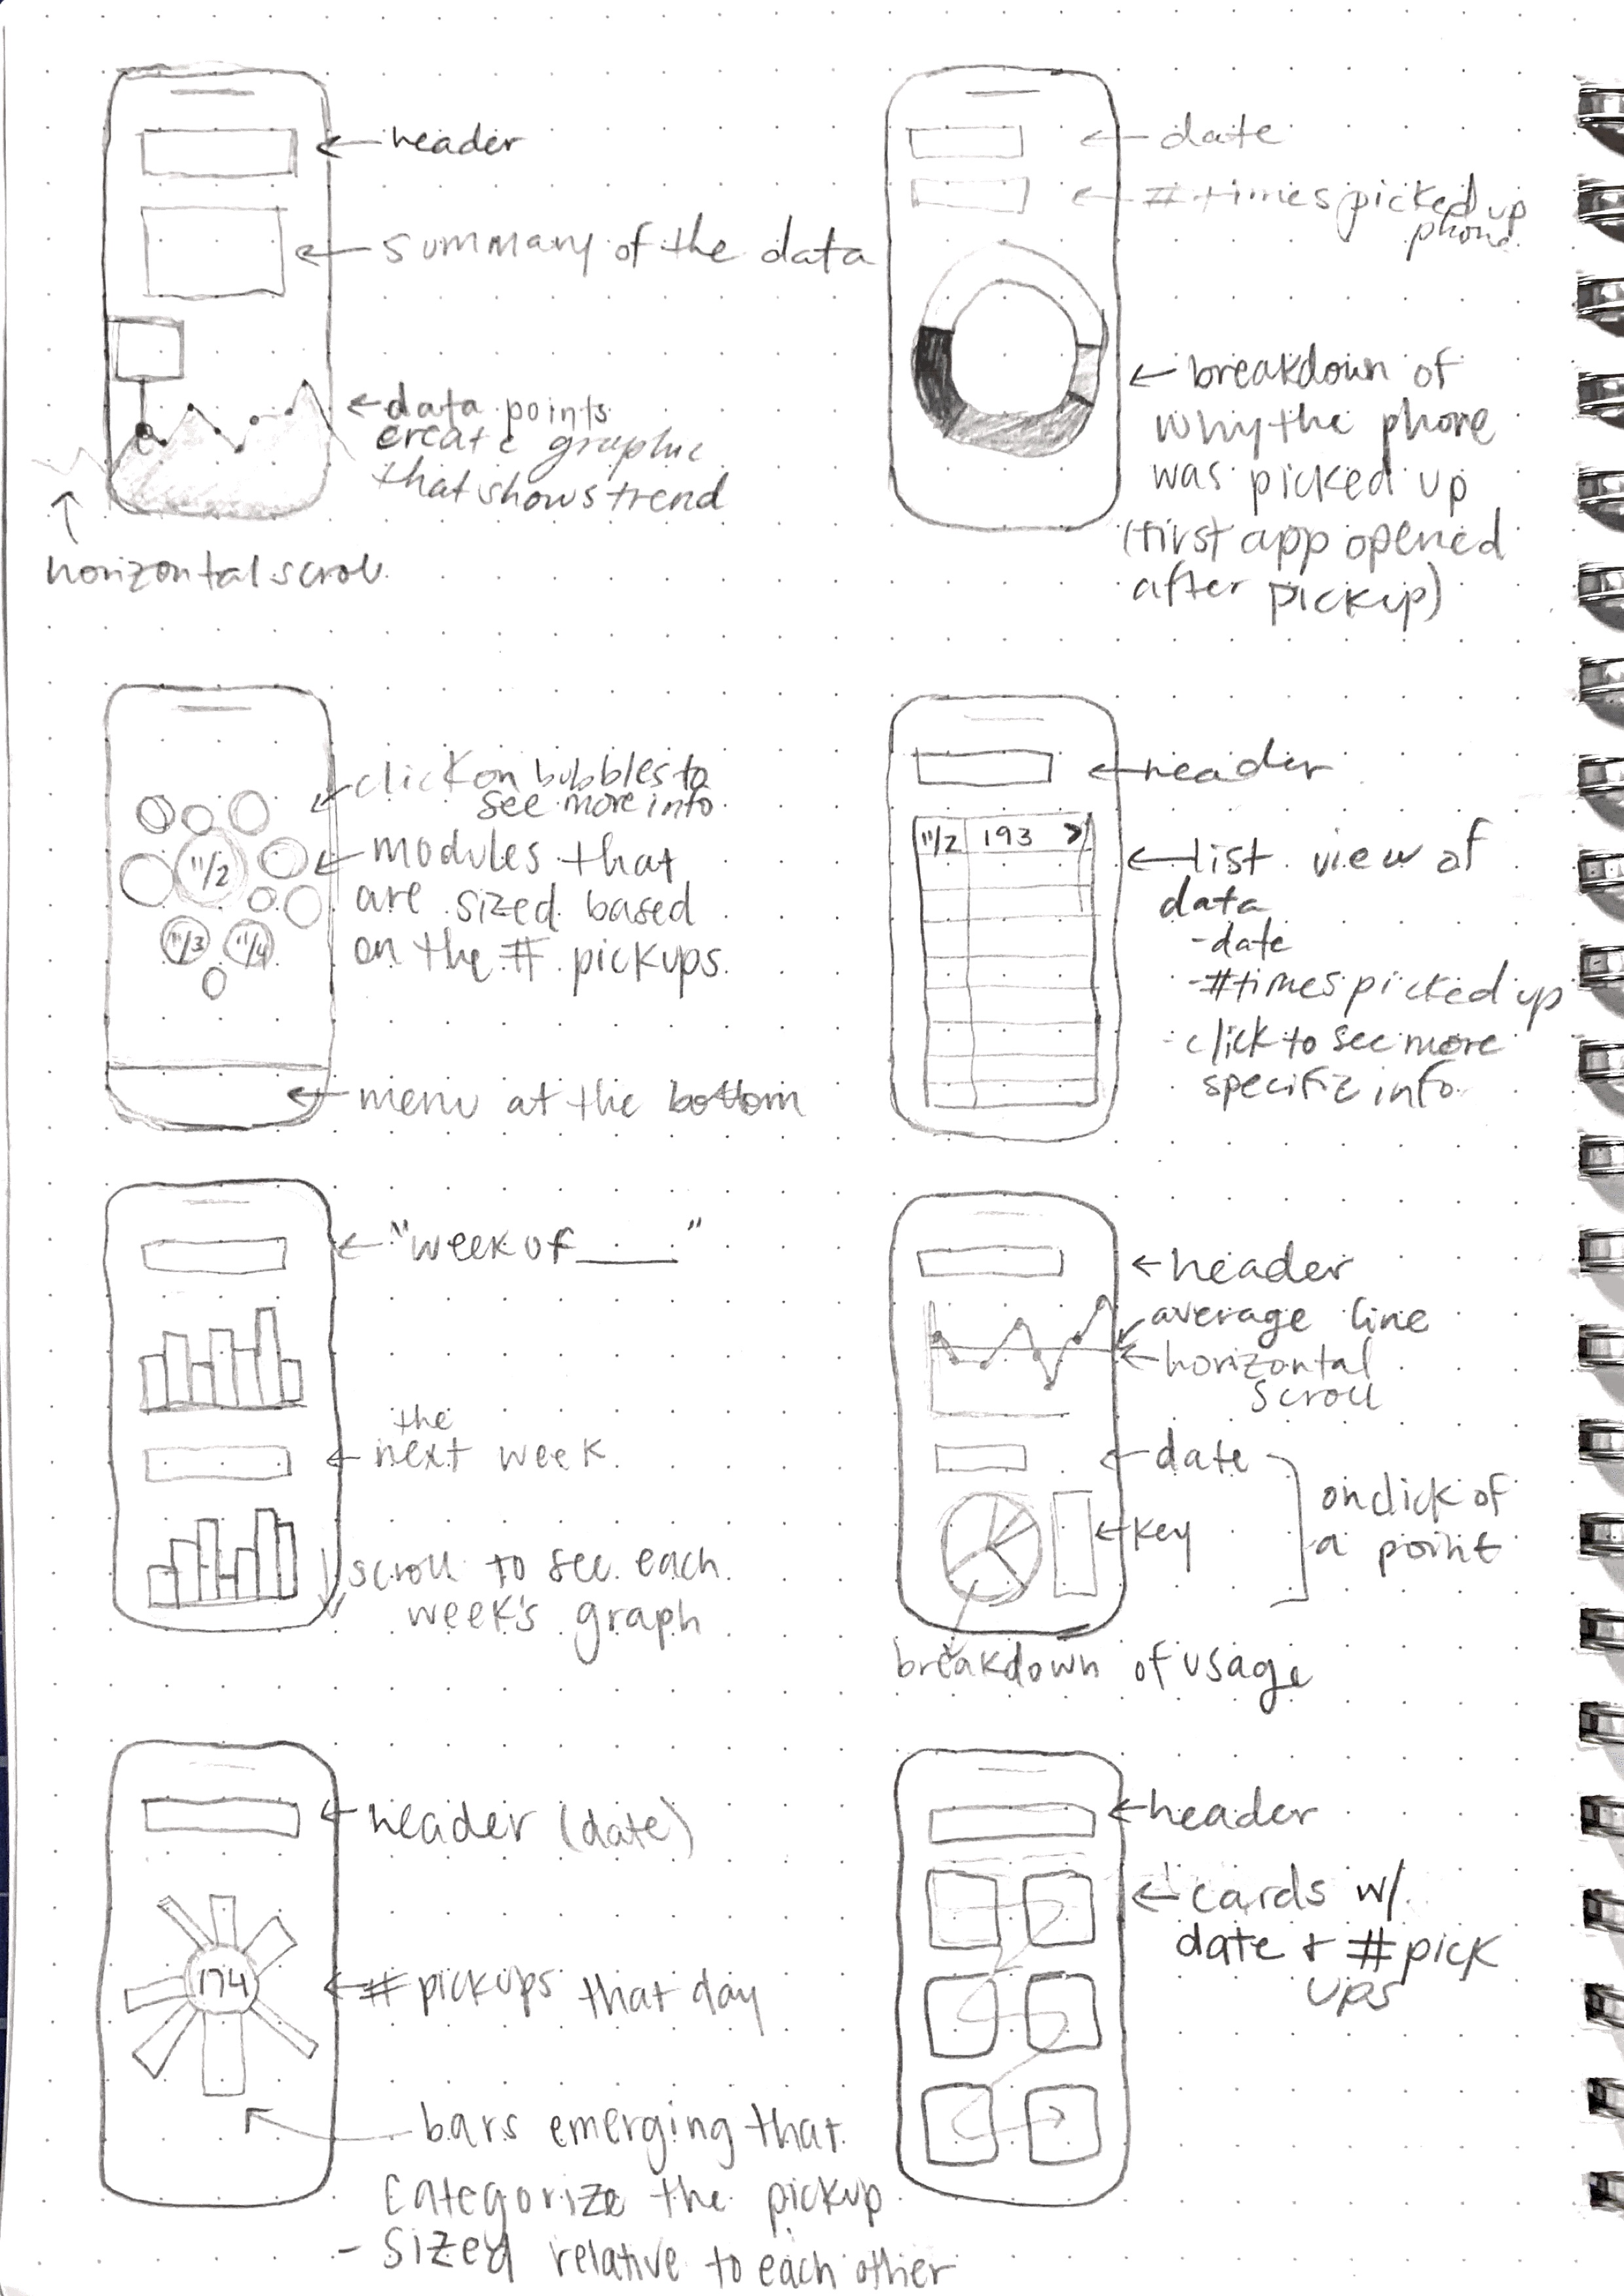 header
summary of the data
data points
create graphic
that shows trend
horizontal scroll
date
# times picked up
phone
breakdown of
why the phone
was picked up
(first app opened
after pickup)
click on bubbles to
see more info
modules that
are sized based
on the # pickups
11/2
11/3 11/4
menu at the bottom
header
11/2 193 >
list view of
data
- date
- # times picked up
- click to see more
specific info
"week of ____"
the
next week
scroll to see each
week's graph
header
average line
horizontal
scroll
date
key
on click of
a point
breakdown of usage
header (date)
174
# pickups that day
bars emerging that
categorize the pickup
- sized relative to each other
header
cards w/
date + # pick
ups